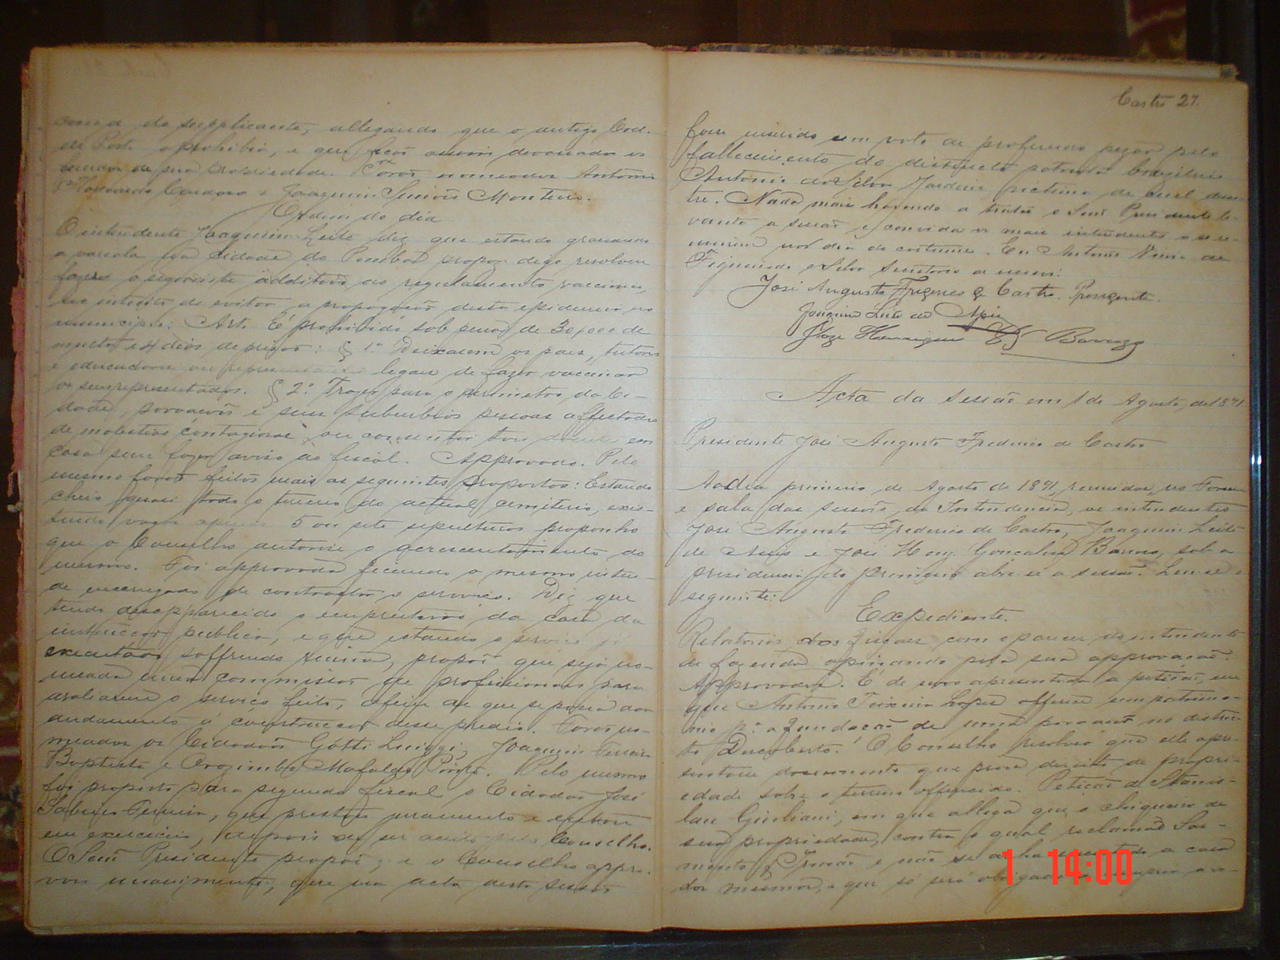 do supplicante, allegando que o antigo Cod.
de prohibio, e que
de sua propriedade. Forão nomeados Antonio
Cardoso e Joaquim Monteiro.
Ordem do dia
O intendente Joaquim Leite diz que estando grassando
a variola na Cidade do propoz digo resolveu
fazer o seguinte additivo ao regulamento vaccinico,
no intuito de evitar a propagação desta epidemia no
municipio: Art. É prohibido sob pena de 30$000 de
multa e 4 dias de prizão: § 1º Deixarem os paes, tutores
e educadores ou legaes de fazer vaccinar
os seus representados. § 2º Trazer para o perimetro da Ci-
dade, povoações e seus suburbios pessoas affectadas
de molestias contagiosas ou consentir em
casa sem fazer aviso ao fiscal. Approvado. Pelo
mesmo forão feitos mais as seguintes propostas: Estando
cheio quasi todo o terreno do actual cemiterio, exis-
tindo vagas apenas 5 ou sete sepulturas proponho
que o Conselho autorise o accrescentamento do
mesmo. Foi approvada ficando o mesmo inten-
de encarregado de contractar o serviço. Diz que
tendo desapparecido o empreiteiro da casa da
instrucção publica, e que estando o serviço já
executado soffrendo propõe que seja no-
meada uma commissão de profissionaes para
avaliarem o serviço feito, afim de que se possa dar
andamento á construcção desse predio. Forão no-
meados os Cidadãos Gotti Luiggi, Joaquim
Baptista e Orozimbo Mafalda Pinto. Pelo mesmo
foi proposto para segundo fiscal o Cidadão José
Sabino Ferreira, que prestou juramento e entrou
em exercicio, depois de ser aceito pelo Conselho.
O Senr Presidente propoz, e o Conselho appro-
vou unanimente, que na acta desta sessão
Castro 27.
fosse inserido um voto de profundo pezar pelo
fallecimento do distincto patriota brazileiro
Antonio da Silva Jardim victima de cruel desas-
tre. Nada mais havendo a tratar o Senr Presidente le-
vanta a sessão e convida os mais intendentes a se re-
unirem no dia do costume. Eu Antonio de
Figueiredo e Silva Secretario a escrevi:
José Augusto Frederico de Castro. Presidente.
Joaquim Leite de Assis
José Henrique Barroso
Acta da sessão em 1 de Agosto de 1891
Presidente José Augusto Frederico de Castro
Ao dia primeiro de Agosto de 1891, reunidos no Forum
e sala das sessões da Intendencia, os intendentes
José Augusto Frederico de Castro, Joaquim Leite
de Assis e José Henq. Gonçalves Barroso, sob a
presidencia do primeiro abre-se a sessão. Leu-se o
seguinte:
Expediente.
Relatorios dos fiscaes com o parecer do intendente
de fazenda opinando pela sua approvação.
Approvados. É de novo apresentada a petição em
que Antonio Teixeira Lopes offerece um patrimo-
nio pª a fundação de uma povoação no distric-
to Descoberto. O Conselho resolveu que elle apre-
sentasse documento que prove direito de propri-
edade sobre o terreno offerecido. Petição de Stanis-
lau Giuliani, em que allega que o chiqueiro de
sua propriedade, contra o qual reclamão Sar-
mento & Grisão e não se acha a casa
dos mesmos, e que só será obrigado
1 14:00